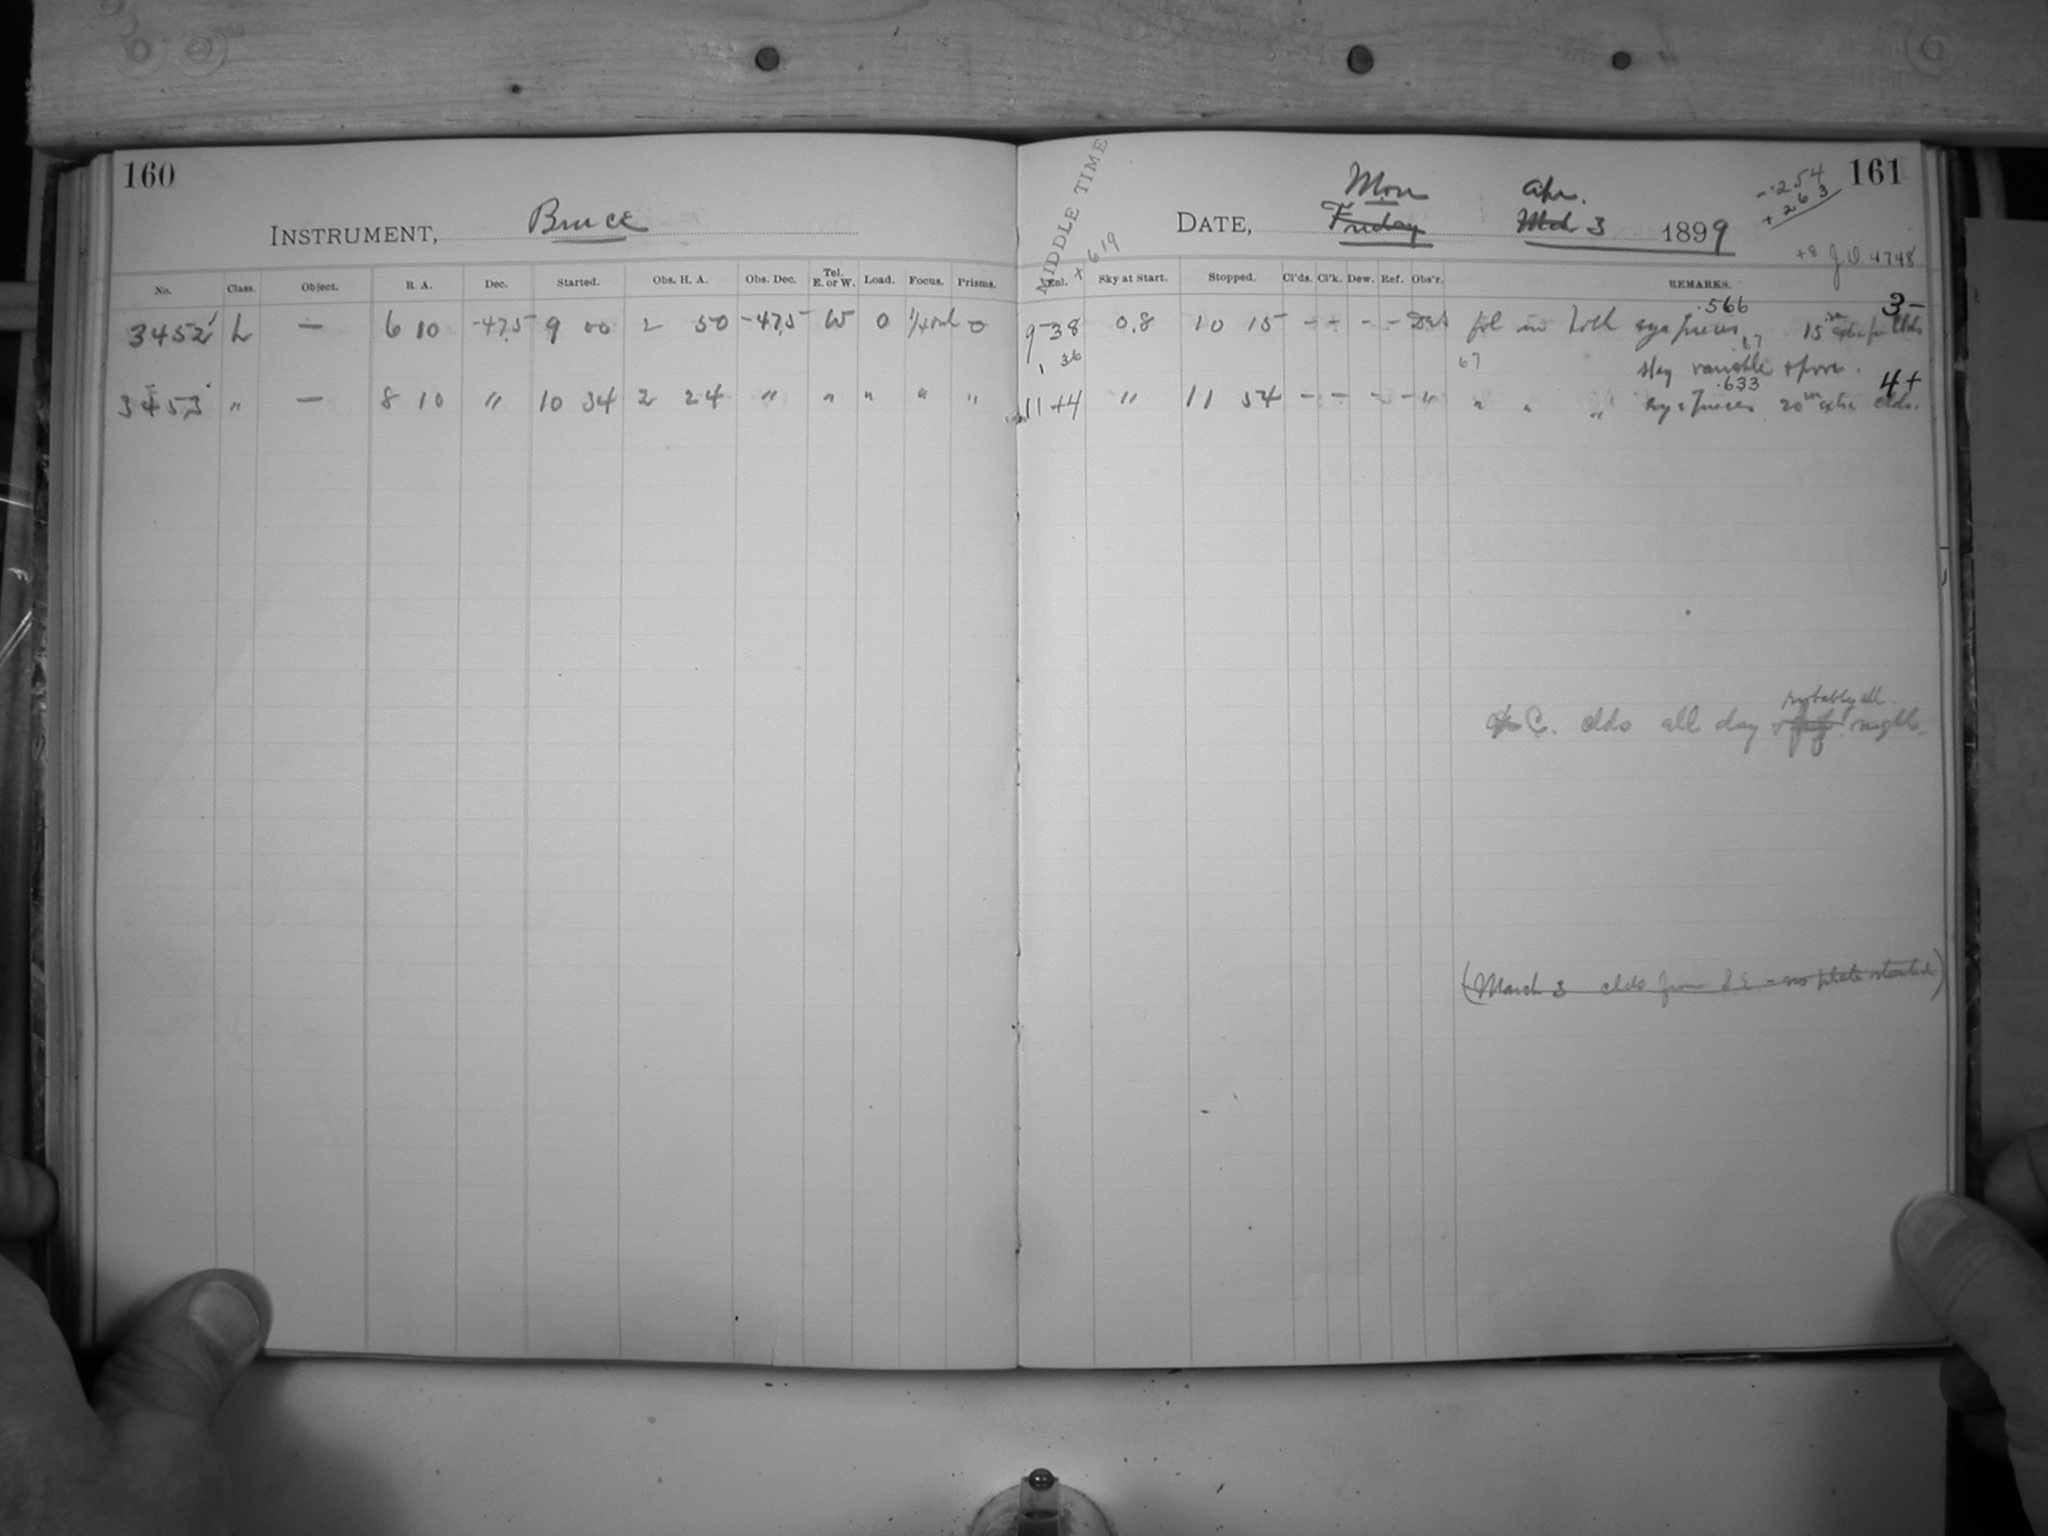 160
INSTRUMENT, Bruce
No. Class. Object. R. A. Dec. Started. Obs. H. A. Obs. Dec. Tel. E. or W. Load. Focus. Prisms.
3452 L — 6 10 -47.5 9 00 2 50 -47.5 W 0 0
3453 " — 8 10 " 10 34 2 24 " " " " "
MIDDLE TIME
+ 6 19
Mon Apr.
DATE, Friday Mch 3 1899
161
-.254
+ 263
+8 J.D. 4748
Enl. Sky at Start. Stopped. Cl'ds. Cl'k. Dew. Ref. Obs'r. REMARKS.
.566 3-
9 38 0.8 10 15 - - - - fol in both eyepieces 15 extra for clds
1 36 67 sky variable + poor.
.633 4+
11 +4 " 11 54 - - - - " " " " eyepieces 20 extra clds.
probably all
C. clds all day + night
(March 3 clds from S E. - no plate started)